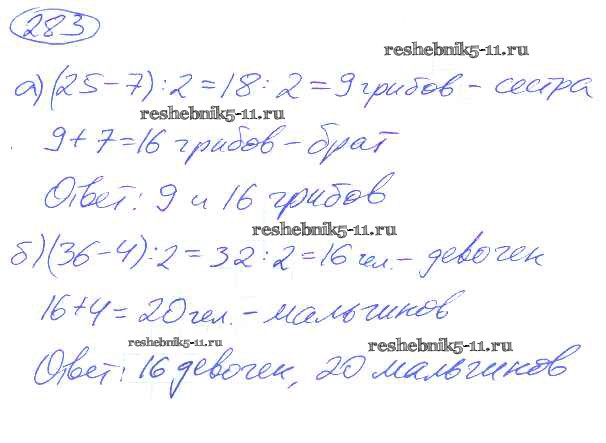 283
reshebnik5-11.ru
а) (25-7):2=18:2=9 грибов - сестра
reshebnik5-11.ru
9+7=16 грибов - брат
Ответ: 9 и 16 грибов
reshebnik5-11.ru
б) (36-4):2=32:2=16 чел. - девочек
16+4=20 чел. - мальчиков
reshebnik5-11.ru
reshebnik5-11.ru
Ответ: 16 девочек, 20 мальчиков